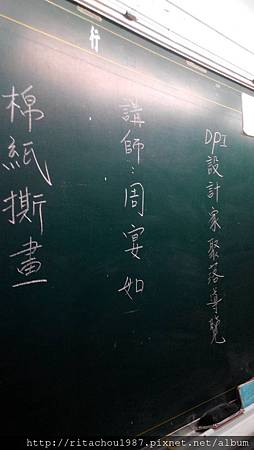 行
DPI設計家聚落導覽
講師:周宴如
棉紙撕畫
http://ritachou1987.pixnet.net/album